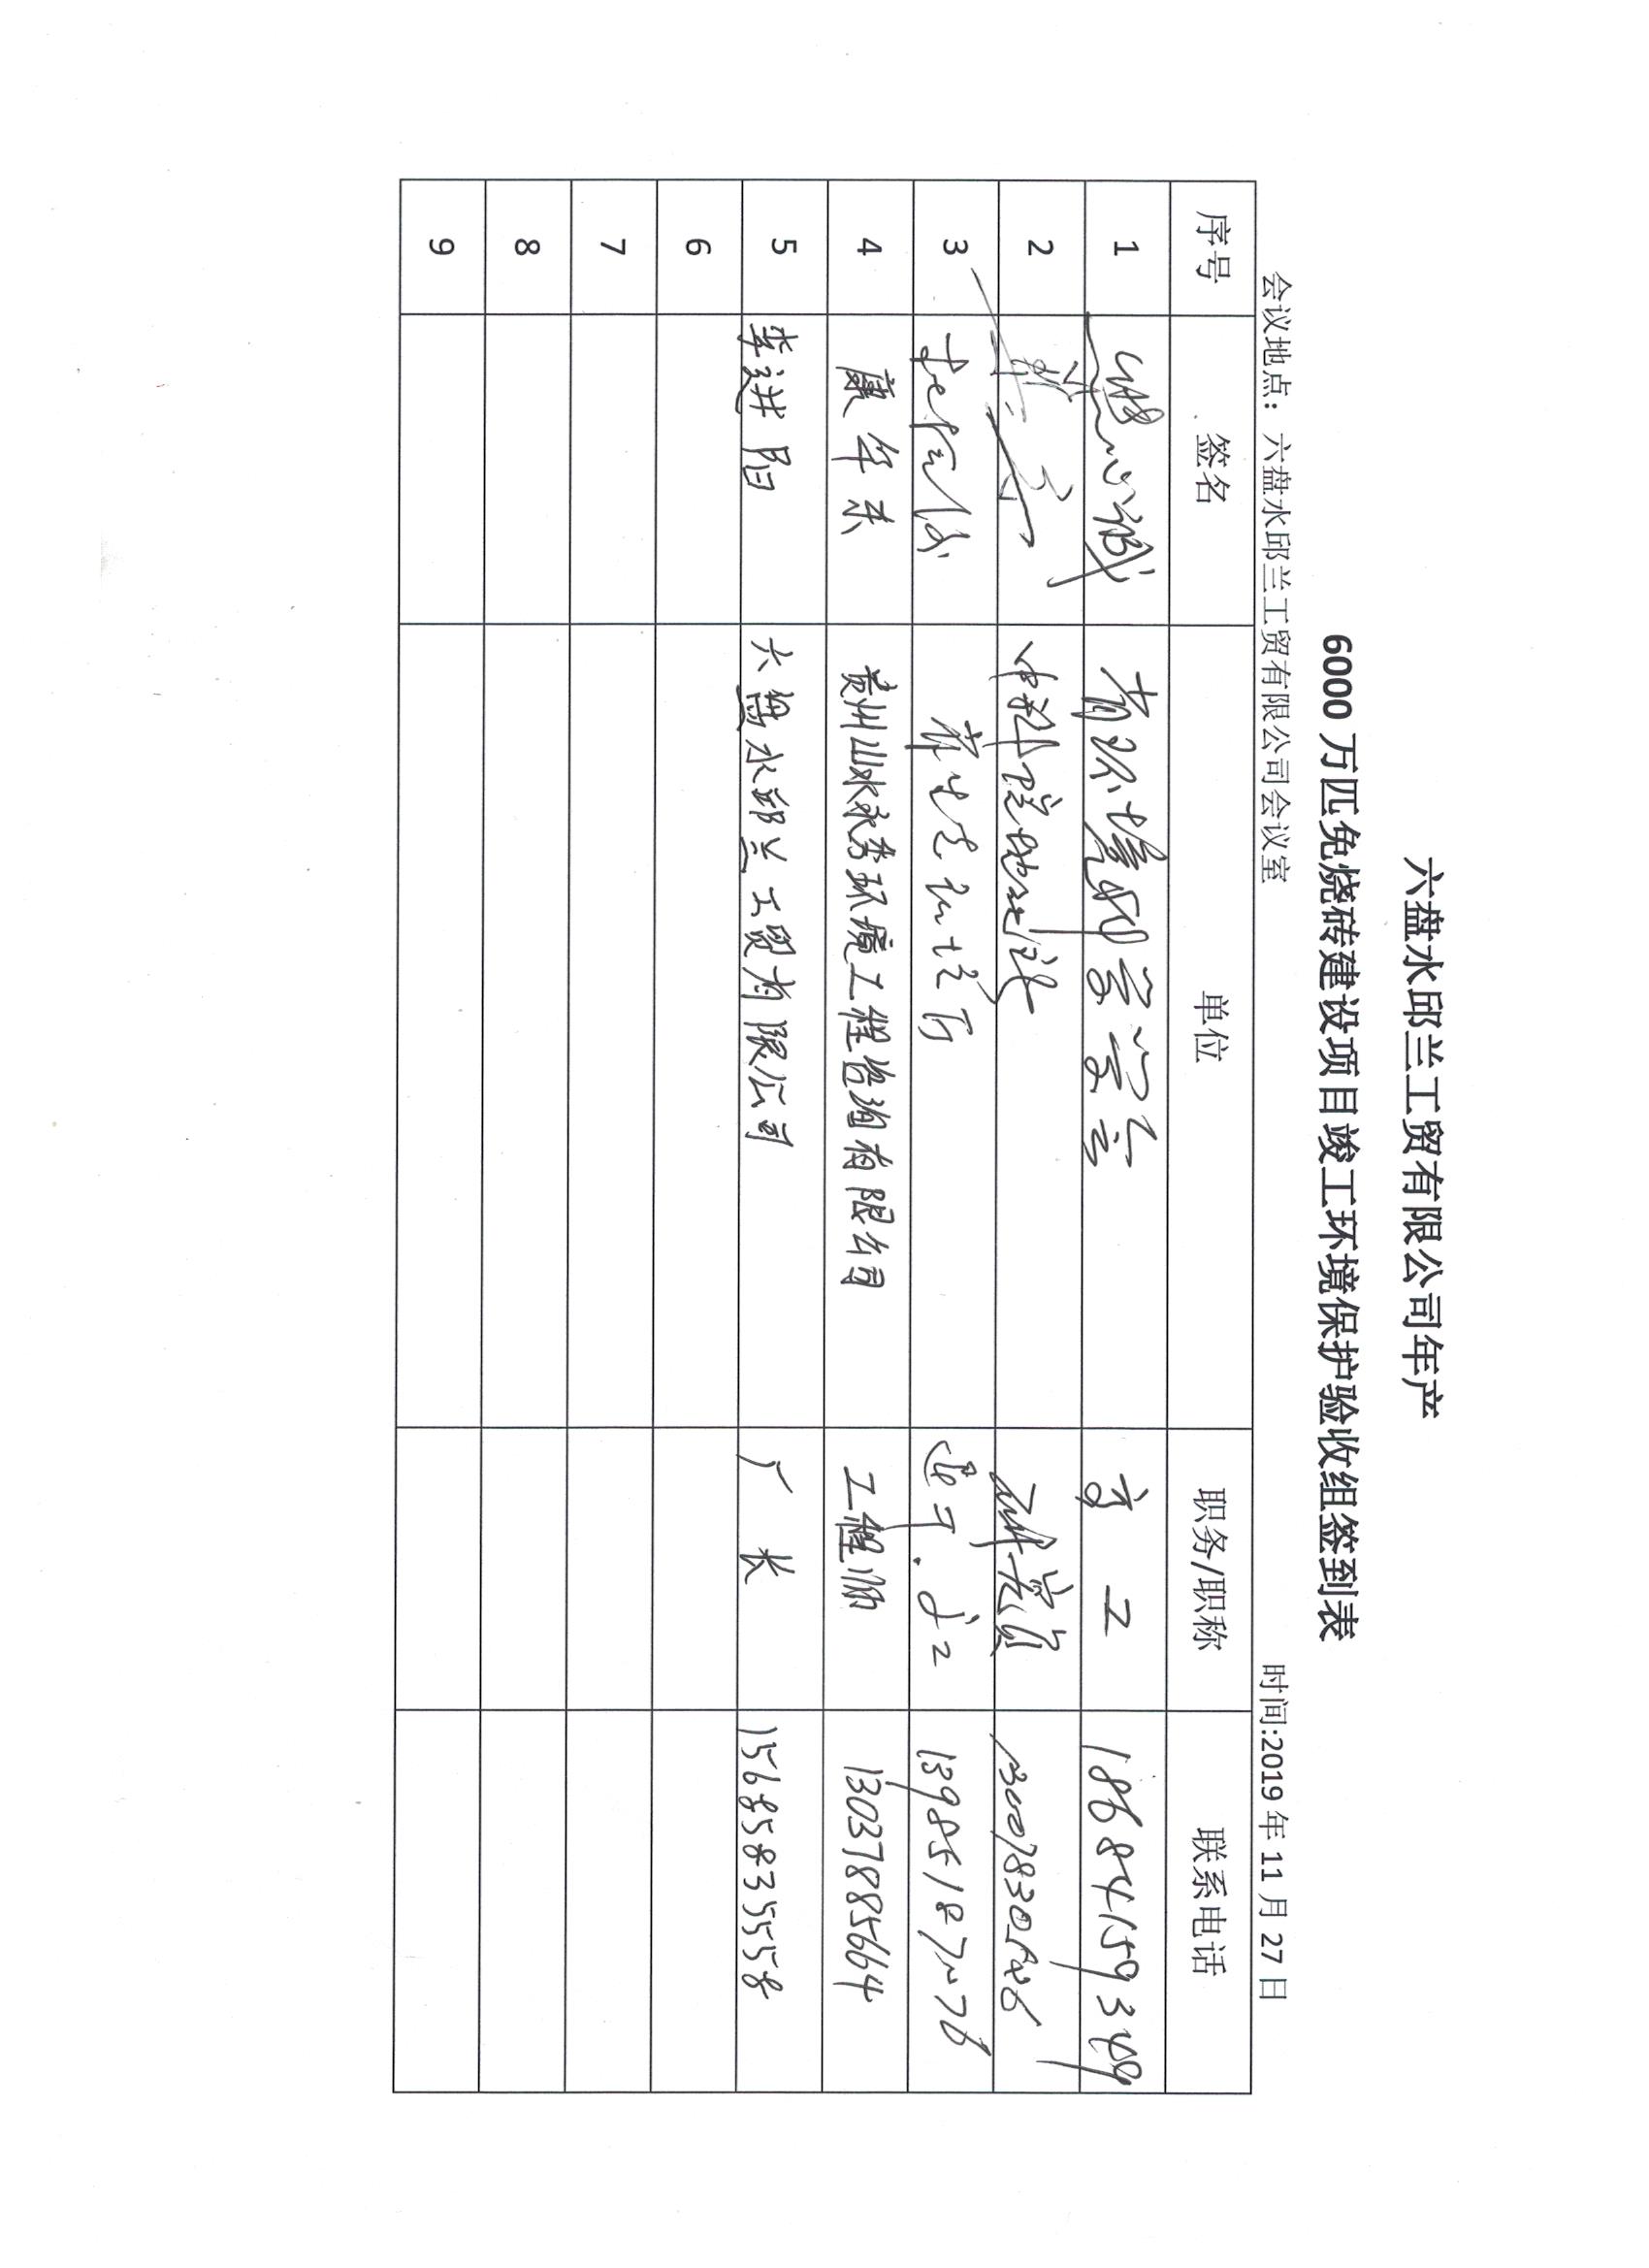 六盘水邱兰工贸有限公司年产
6000万匹免烧砖建设项目竣工环境保护验收组签到表
会议地点：六盘水邱兰工贸有限公司会议室 时间:2019年11月27日
序号 签名 单位 职务/职称 联系电话
1 省环境科学学会 高工 18684159349
2 中科院地化所 研究员
3 13985187276
4 康华东 贵州山水永秀环境工程咨询有限公司 工程师 13037885664
5 李进阳 六盘水邱兰工贸有限公司 厂长 15685835558
6
7
8
9